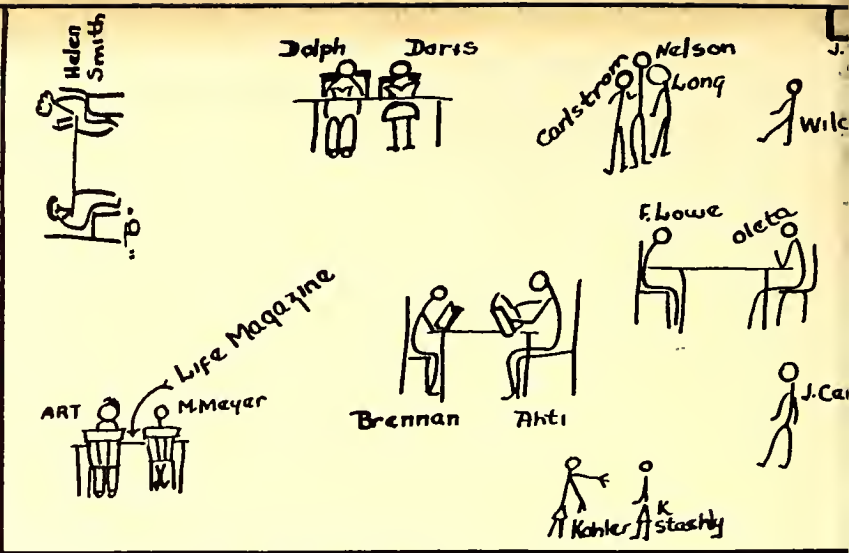 Helen
Smith
"B"
Dolph
Doris
Carlstrom
Nelson
Long
J.
Wilc
F. Lowe
Oleta
Life Magazine
ART
M. Meyer
Brennan
Ahti
J. Car
Kohler
K
Stashly